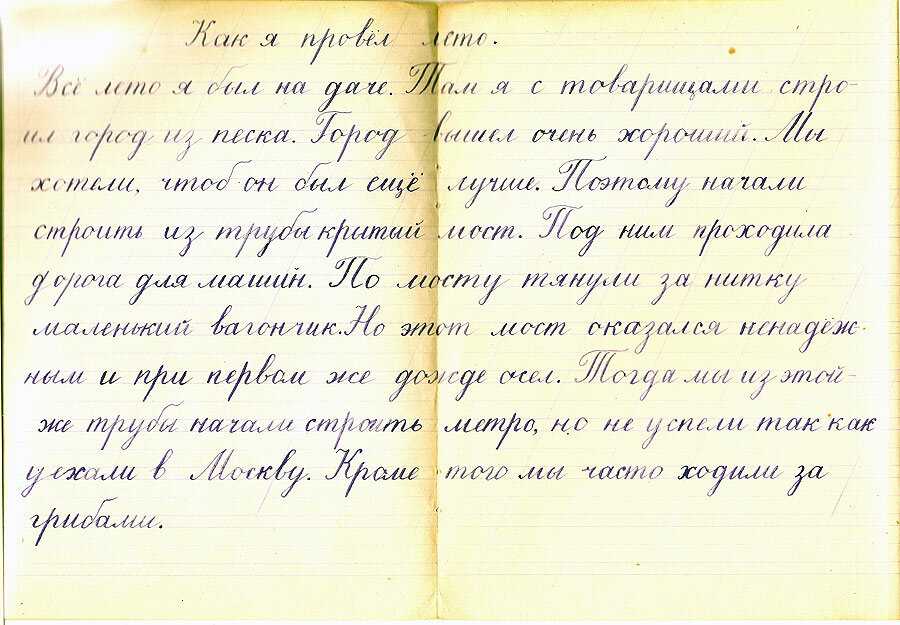 Как я провёл лето.
Всё лето я был на даче. Там я с товарищами стро-
ил город из песка. Город вышел очень хороший. Мы
хотели, чтоб он был ещё лучше. Поэтому начали
строить из трубы крытый мост. Под ним проходила
дорога для машин. По мосту тянули за нитку
маленький вагончик. Но этот мост оказался ненадёж-
ным и при первом же дожде осел. Тогда мы из этой-
же трубы начали строить метро, но не успели так как
уехали в Москву. Кроме того мы часто ходили за
грибами.